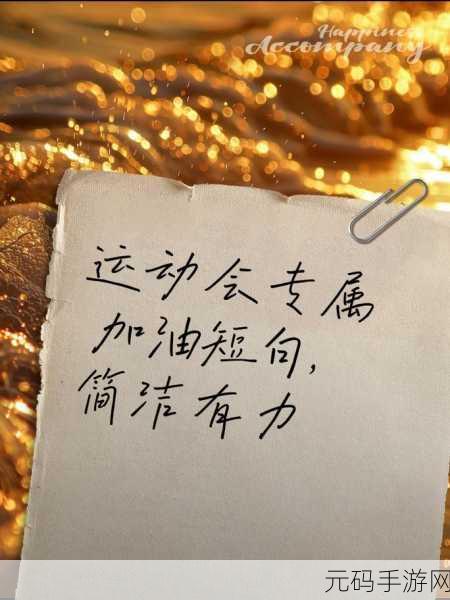 Happiness
Accompany
运动会专属
加油短句,
简洁有力
元码手游网